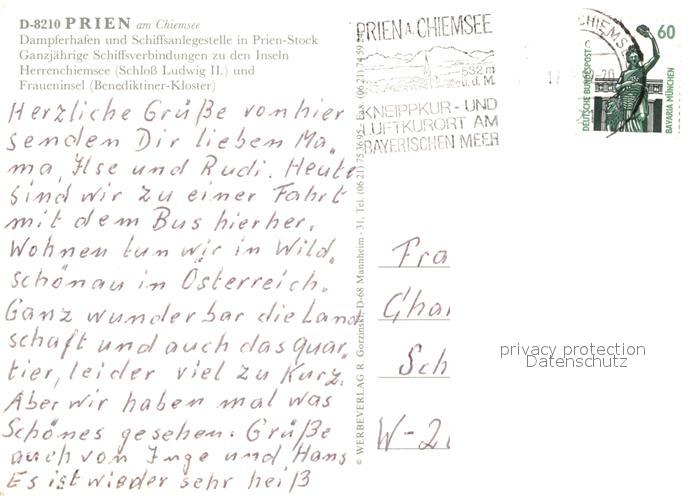 D-8210 PRIEN am Chiemsee
Dampferhafen und Schiffsanlegestelle in Prien-Stock
Ganzjährige Schiffsverbindungen zu den Inseln
Herrenchiemsee (Schloß Ludwig II.) und
Fraueninsel (Benediktiner-Kloster)
Herzliche Grüße von hier
senden Dir lieben Ma„
ma, Ilse und Rudi. Heute
sind wir zu einer Fahrt
mit dem Bus hierher.
Wohnen tun wir in Wild„
schönau in Österreich.
Ganz wunderbar die Land
schaft und auch das Quar„
tier, leider viel zu kurz.
Aber wir haben mal was
Schönes gesehen. Grüße
auch von Inge und Hans
Es ist wieder sehr heiß
© WERBEVERLAG R. Gorzinski, D-68 Mannheim - 31, Tel. (06 21) 75 36 95 - Fax (06 21) 74 59 24
PRIEN A. CHIEMSEE
532 m
ü. d. M.
KNEIPPKUR- UND
LUFTKURORT AM
BAYERISCHEN MEER
CHIEMSEE
60
DEUTSCHE BUNDESPOST
BAVARIA MÜNCHEN
Fra
Char
Sch
W-2
privacy protection
Datenschutz